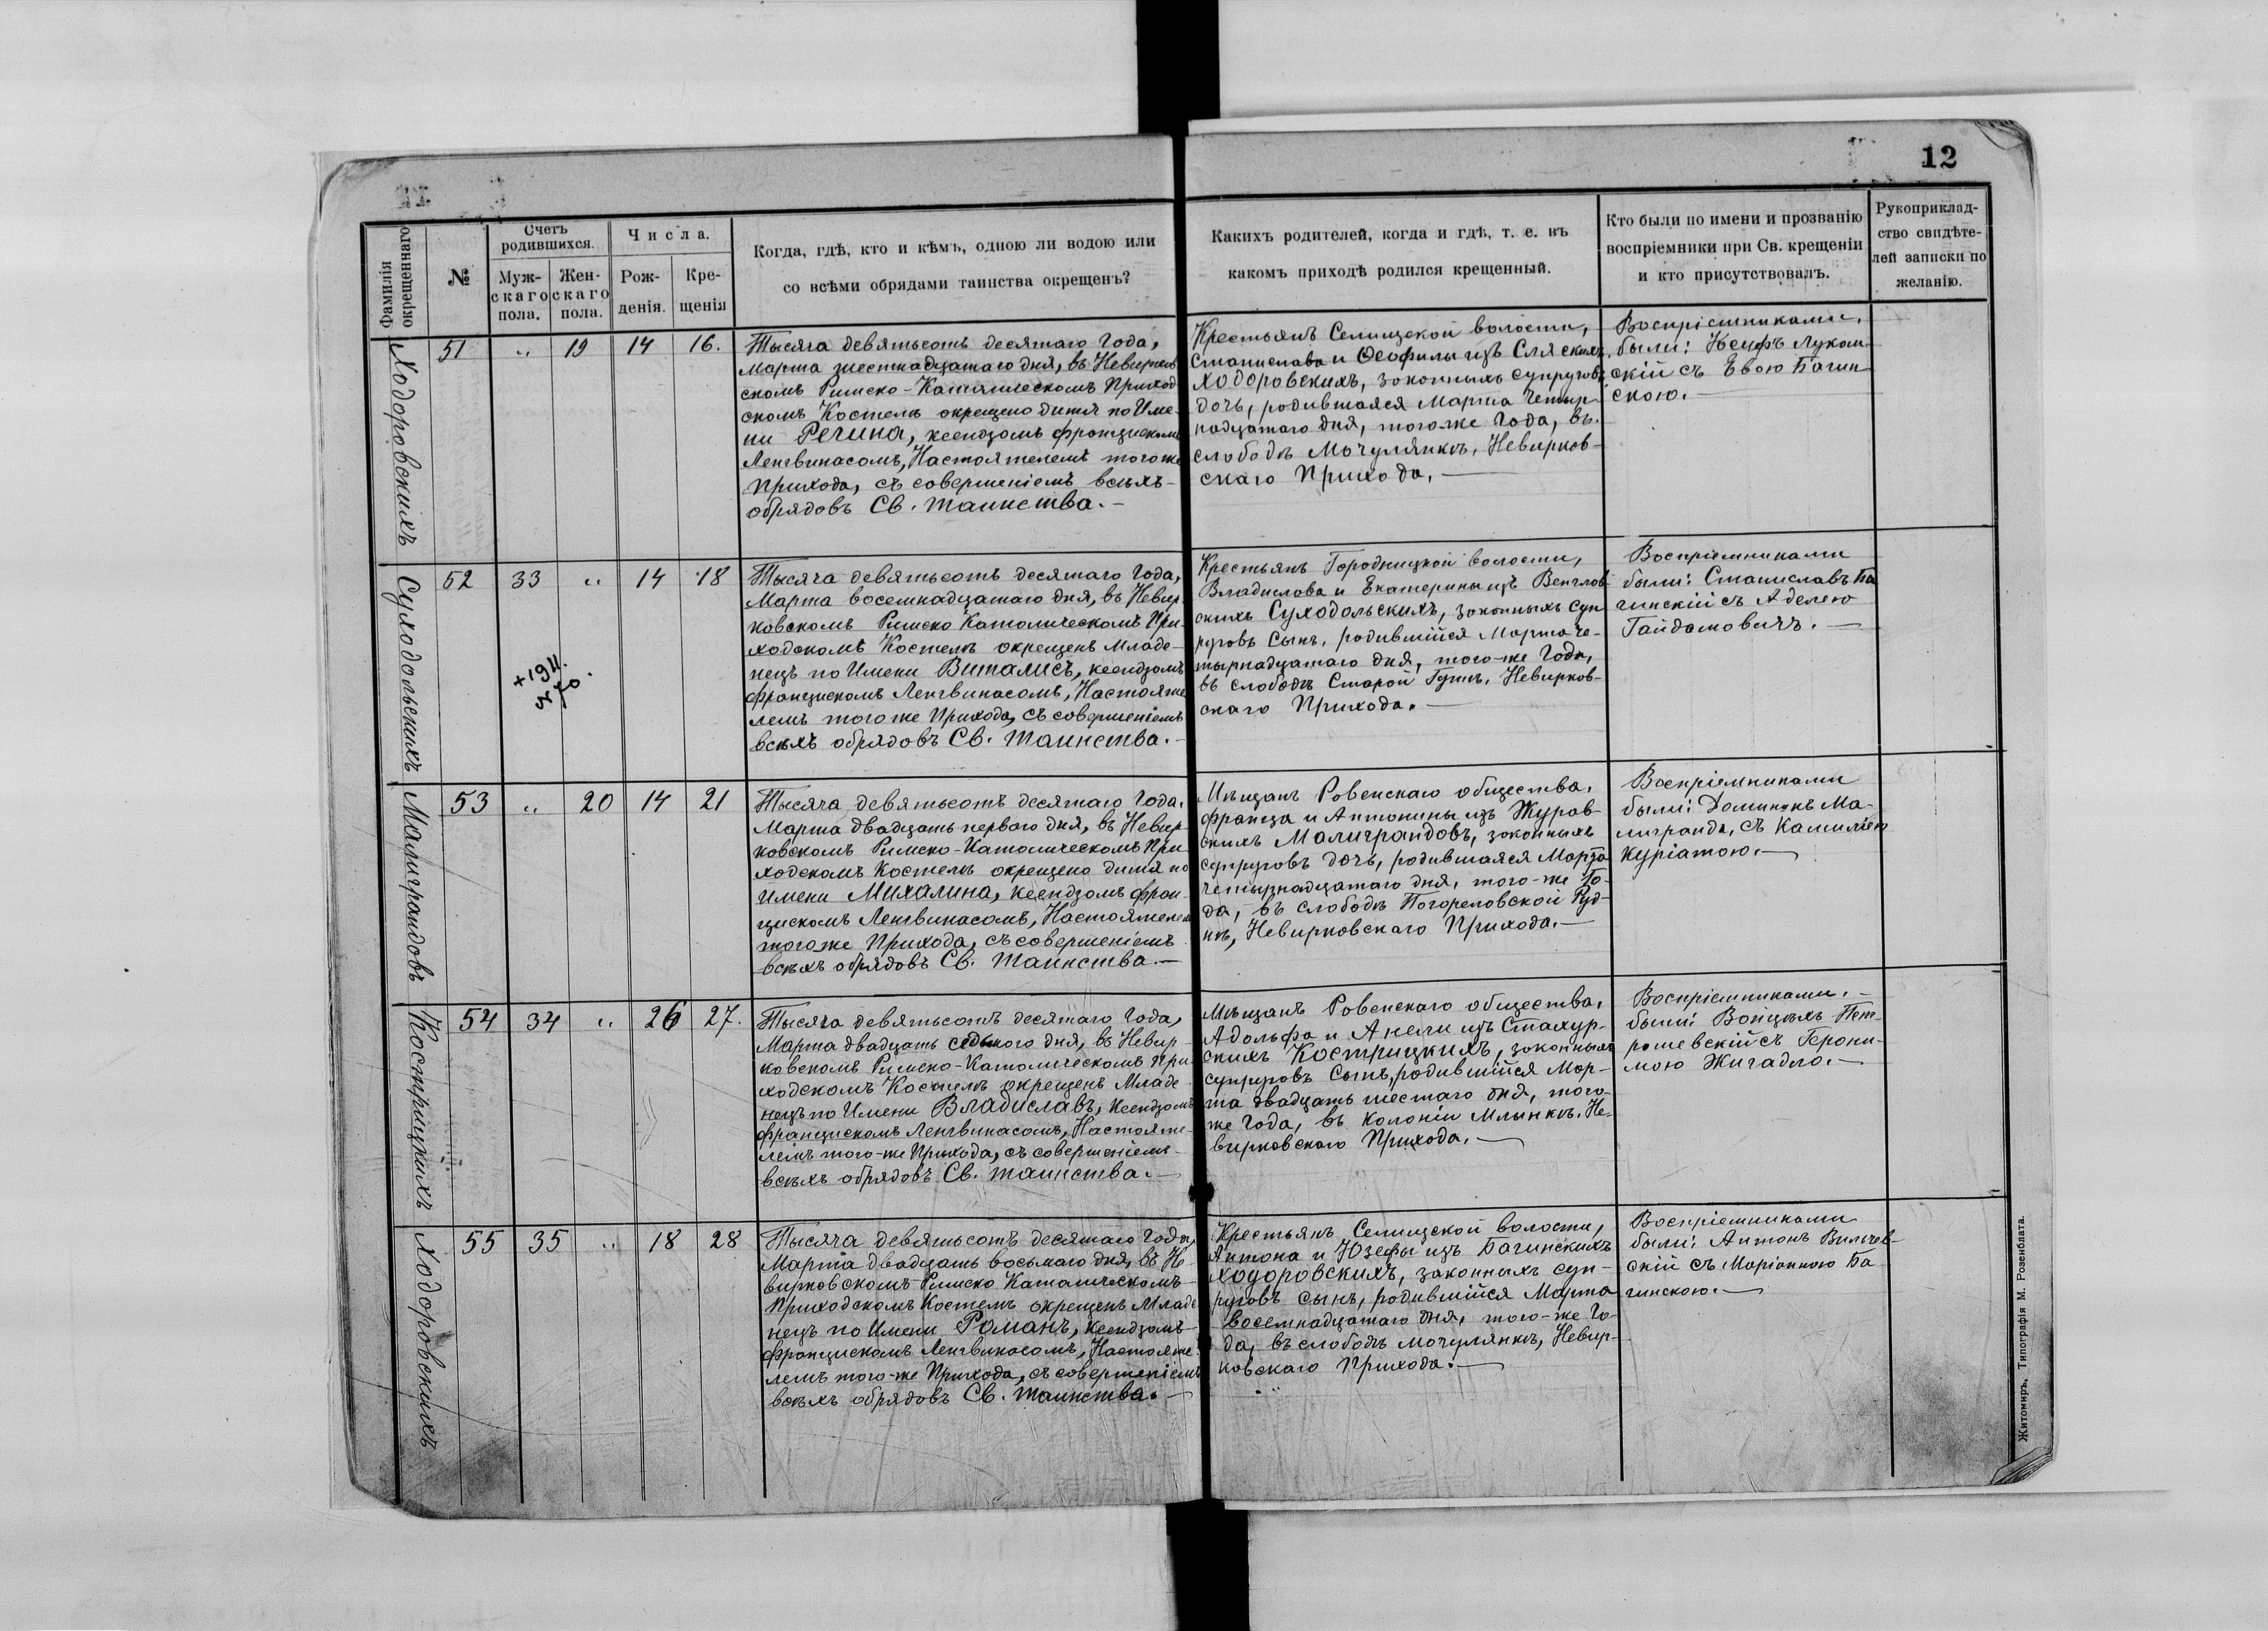 12
Фамилія
окрещеннаго
№
Счетъ
родившихся.
Муж-
скаго
пола.
Жен-
скаго
пола.
Числа.
Рож-
денія.
Кре-
щенія
Когда, гдѣ, кто и кѣмъ, одною ли водою или
со всѣми обрядами таинства окрещенъ?
Какихъ родителей, когда и гдѣ, т. е. въ
какомъ приходѣ родился крещенный.
Кто были по имени и прозванію
воспріемники при Св. крещеніи
и кто присутствовалъ.
Рукоприклад-
ство свидѣте-
лей записки по
желанію.
Ходоровскихъ
51 „ 19 14 16.
Тысяча девятьсотъ десятаго Года,
Марта шестнадцатаго дня, въ Невирков
скомъ Римско-Католическомъ Приход
скомъ Костелѣ окрещено дитя по Име-
ни Регина, ксендзомъ Францискомъ
Ленгвинасомъ, Настоятелемъ того же
Прихода, съ совершеніемъ всѣхъ
обрядовъ Св. Таинства.-
Крестьянъ Селищской волости,
Станислава и Ѳеофилы изъ
Ходоровскихъ, законныхъ супруговъ
дочь, родившаяся Марта четыр-
надцатаго дня, того-же Года, въ
слободѣ Мочулянкѣ, Невирков-
скаго Прихода.
Воспріемниками
были: Іосифъ Луком-
скій съ Евою Багин-
скою.
Суходольскихъ
52 33 „ 14 18
+1911.
№ 70.
Тысяча девятьсотъ десятаго Года,
Марта восемнадцатаго дня, въ Невир-
ковскомъ Римско Католическомъ При-
ходскомъ Костелѣ окрещенъ Младе-
нецъ по Имени Виталисъ, ксендзомъ
Францискомъ Ленгвинасомъ, Настояте
лемъ того же Прихода, съ совершеніемъ
всѣхъ обрядовъ Св. Таинства.-
Крестьянъ Городницкой волости,
Владислава и Екатерины изъ Венглов-
скихъ Суходольскихъ, законныхъ суп
руговъ Сынъ, родившійся Марта че-
тырнадцатаго дня, того-же Года,
въ слободѣ Старой Гутѣ, Невирков-
скаго Прихода.
Воспріемниками
были: Станиславъ Ба
гинскій съ Аделею
Гайдамовичъ.
Малиграндовъ
53 „ 20 14 21
Тысяча девятьсотъ десятаго Года,
Марта двадцать перваго дня, въ Невир-
ковскомъ Римско-Католическомъ При
ходскомъ Костелѣ окрещено дитя по
Имени Михалина, ксендзомъ Фран-
цискомъ Ленгвинасомъ, Настоятелемъ
того же Прихода, съ совершеніемъ
всѣхъ обрядовъ Св. Таинства.
Мѣщанъ Ровенскаго общества,
Франца и Антонины изъ Журав-
скихъ Малиграндовъ, законныхъ
супруговъ дочь, родившаяся Марта
четырнадцатаго дня, того-же Го-
да, въ слободѣ Погореловской Руд-
нѣ, Невирковскаго Прихода.
Воспріемниками
были: Доминикъ Ма-
лигранда, съ Камиліею
Куріатою.
Кострицкихъ
54 34 „ 26 27.
Тысяча девятьсотъ десятаго Года,
Марта двадцать седьмого дня, въ Невир-
ковскомъ Римско-Католическомъ При-
ходскомъ Костелѣ окрещенъ Младе-
нецъ по Имени Владиславъ, ксендзомъ
Францискомъ Ленгвинасомъ, Настояте-
лемъ того-же Прихода, съ совершеніемъ
всѣхъ обрядовъ Св. Таинства.
Мѣщанъ Ровенскаго общества,
Адольфа и Анели изъ Стахур-
скихъ Кострицкихъ, законныхъ
супруговъ Сынъ, родившійся Мар-
та двадцать шестаго дня, того-
же Года, въ колоніи Млынкѣ, Не-
вирковскаго Прихода.
Воспріемниками
были: Войцѣхъ Пет-
рашевскій съ Герони-
мою Жигадло.
Ходоровскихъ
55 35 „ 18 28
Тысяча девятьсотъ десятаго Года,
Марта двадцать восьмаго дня, въ Не-
вирковскомъ Римско Католическомъ
Приходскомъ Костелѣ окрещенъ Младе
нецъ по Имени Романъ, ксендзомъ
Францискомъ Ленгвинасомъ, Настояте-
лемъ того-же Прихода, съ совершеніемъ
всѣхъ обрядовъ Св. Таинства.
Крестьянъ Селищской волости,
Антона и Юзефы изъ Багинскихъ
Ходоровскихъ, законныхъ суп-
руговъ сынъ, родившійся Марта
восемнадцатаго дня, того-же Го-
да, въ слободѣ Мочулянкѣ, Невир-
ковскаго Прихода.
Воспріемниками
были: Антонъ Вильчев-
скій съ Маріанною Ба
гинскою.
Житомиръ, Типографія М. Розенблата.